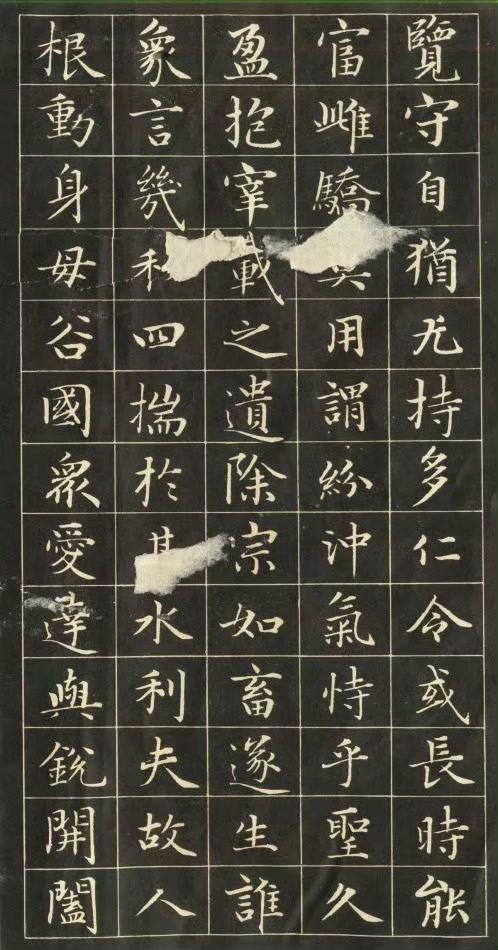 覽守自猶无持多仁令或長時能
富雌驕用謂紛沖氣恃乎聖久
盈抱宰載之遺除宗如畜遂生誰
衆言幾四揣於水利夫故人
根動身毋谷國眾愛達與銳開闔